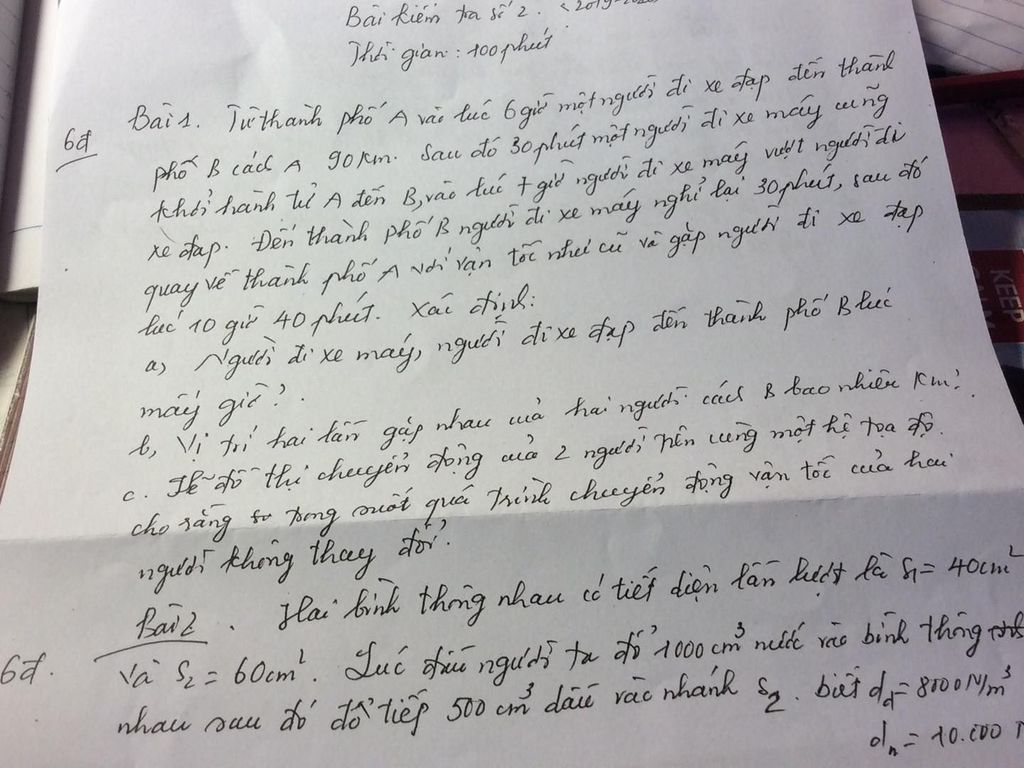 Bài kiểm tra số 2. (2019-2020)
Thời gian: 100 phút
6đ
Bài 1. Từ thành phố A vào lúc 6 giờ một người đi xe đạp đến thành
phố B cách A 90 Km. Sau đó 30 phút một người đi xe máy cũng
khởi hành từ A đến B, vào lúc 7 giờ người đi xe máy vượt người đi
xe đạp. Đến thành phố B người đi xe máy nghỉ lại 30 phút, sau đó
quay về thành phố A với vận tốc như cũ và gặp người đi xe đạp
lúc 10 giờ 40 phút. Xác định:
a, Người đi xe máy, người đi xe đạp đến thành phố B lúc
mấy giờ?
b, Vị trí hai lần gặp nhau của hai người cách B bao nhiêu Km?
c. Vẽ đồ thị chuyển động của 2 người trên cùng một hệ tọa độ.
cho rằng trong suốt quá trình chuyển động vận tốc của hai
người không thay đổi.
6đ.
Bài 2. Hai bình thông nhau có tiết diện lần lượt là S1 = 40cm²
và S2 = 60cm². Lúc đầu người ta đổ 1000 cm³ nước vào bình thông
nhau sau đó đổ tiếp 500 cm³ dầu vào nhánh S2. biết dd = 8000N/m³
dn = 10.000
KEEP